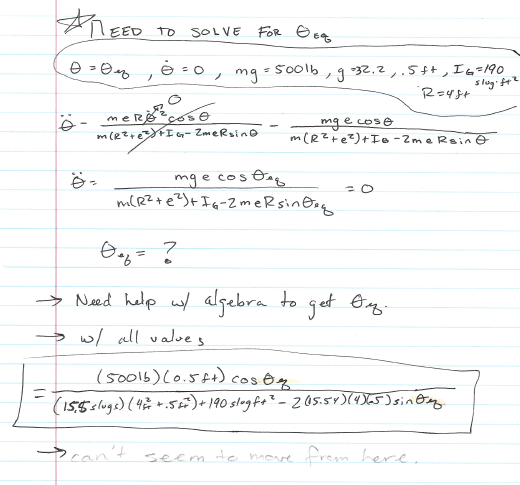 ☆NEED TO SOLVE FOR θeq
θ = θeq , θ̇ = 0 , mg = 500lb , g = 32.2 , .5ft , IG = 190 slug·ft²
R = 4ft
θ̈ - meRθ̇²cosθ / m(R²+e²)+IG-2meRsinθ - mgecosθ / m(R²+e²)+IG-2meRsinθ
0
θ̈ - mge cosθeq / m(R²+e²)+IG-2meRsinθeq = 0
θeq = ?
→ Need help w/ algebra to get θeq.
→ w/ all values
= (500lb)(0.5ft)cosθeq / (15.5slugs)(4ft²+.5ft²)+190slugft²-2(15.54)(4)(.5)sinθeq
→ can't seem to move from here.